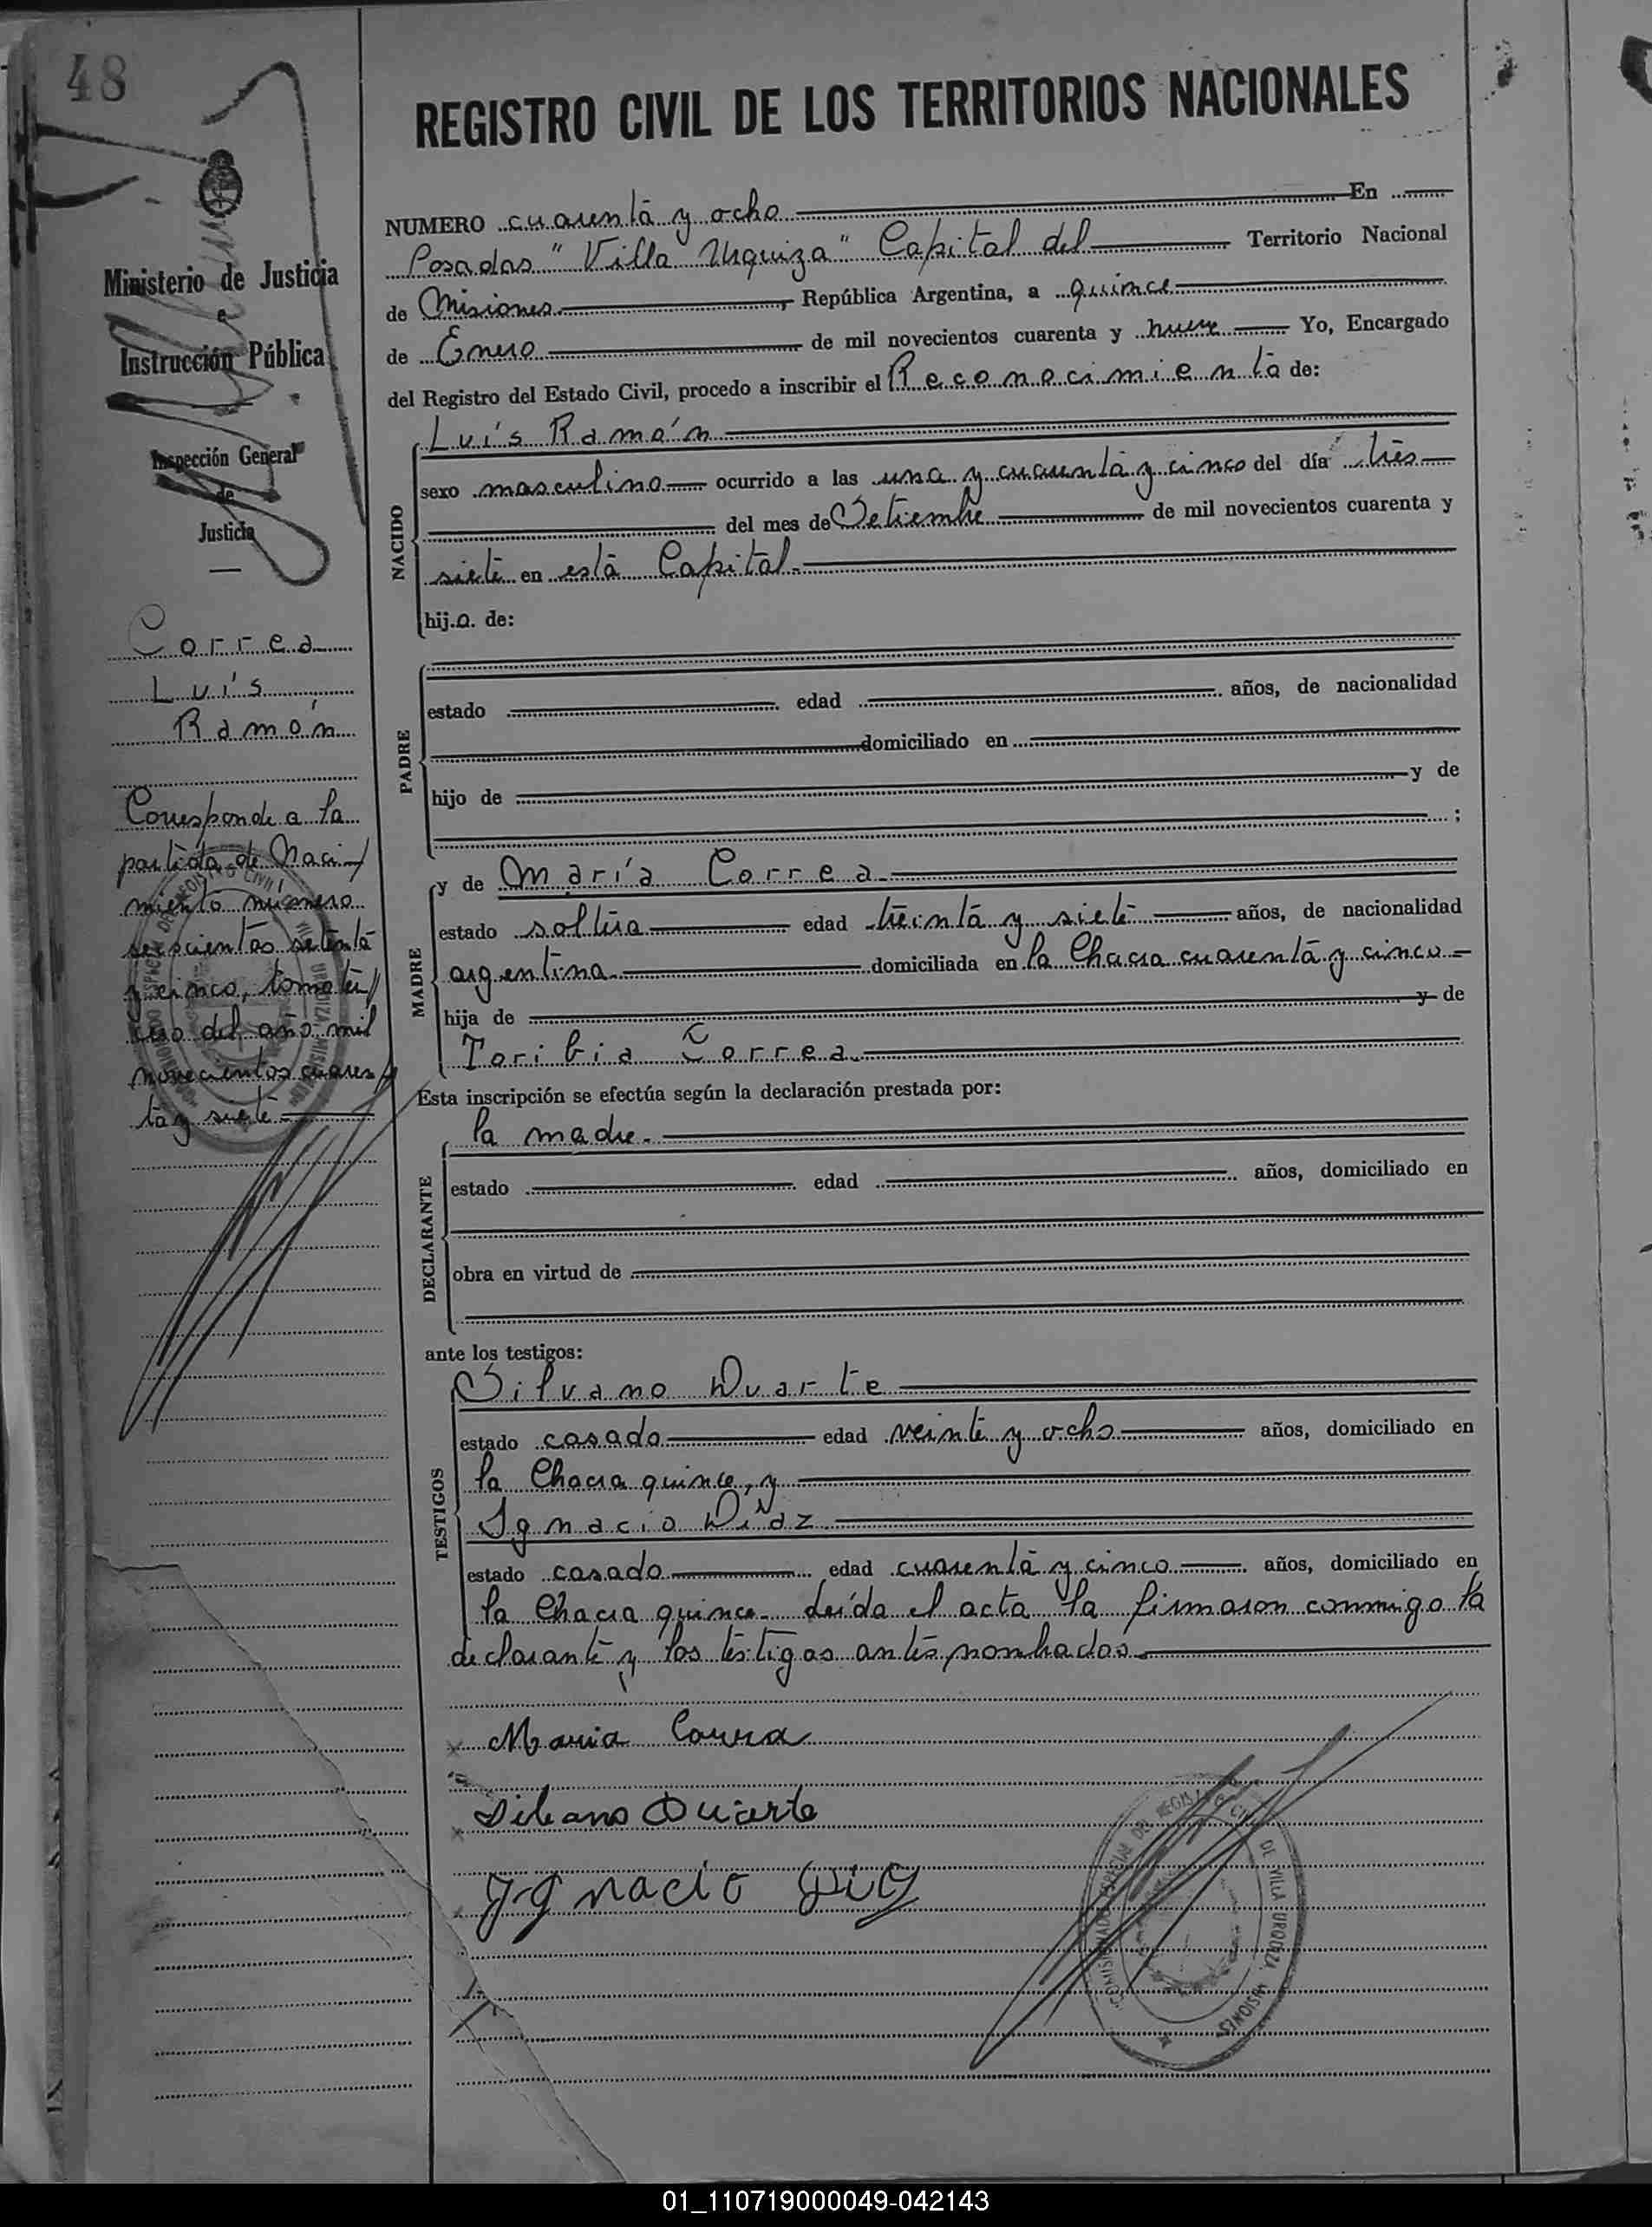 48
REGISTRO CIVIL DE LOS TERRITORIOS NACIONALES
Ministerio de Justicia
Instrucción Pública
Inspección General
de
Justicia
Correa
Luís
Ramón
Corresponde a la
partida de Naci-
miento número
seiscientos setenta
y cinco, tomo ter
cero del año mil
novecientos cuaren
ta y siete
NUMERO cuarenta y ocho En
Posadas "Villa Urquiza" Capital del Territorio Nacional
de Misiones, República Argentina, a quince
de Enero de mil novecientos cuarenta y nueve Yo, Encargado
del Registro del Estado Civil, procedo a inscribir el Reconocimiento de:
NACIDO
Luís Ramón
sexo masculino ocurrido a las una y cuarenta y cinco del día tres
del mes de Setiembre de mil novecientos cuarenta y
siete en esta Capital.
hij.o. de:
PADRE
estado edad años, de nacionalidad
domiciliado en
hijo de y de
;
MADRE
y de María Correa.
estado soltera edad treinta y siete años, de nacionalidad
argentina domiciliada en la Chacra cuarenta y cinco
hija de y de
Toribia Correa.
Esta inscripción se efectúa según la declaración prestada por:
DECLARANTE
la madre.
estado edad años, domiciliado en
obra en virtud de
ante los testigos:
TESTIGOS
Silvano Duarte
estado casado edad veinte y ocho años, domiciliado en
la Chacra quince, y
Ignacio Díaz
estado casado edad cuarenta y cinco años, domiciliado en
la Chacra quince. Leída el acta la firmaron conmigo la
declarante y los testigos antes nombrados.
Maria Correa
Silvano Duarte
Ignacio
COMISIONADO ESPECIAL DEL REGISTRO CIVIL DE VILLA URQUIZA MISIONES
01_110719000049-042143